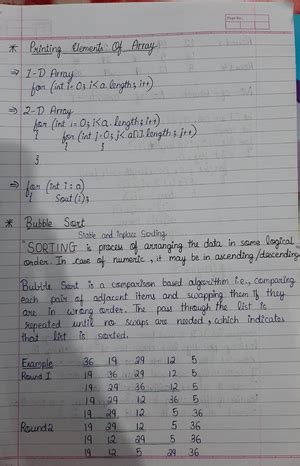 Page No.
* Printing Elements Of Array
⇒ 1-D Array
for (int i=0; i<a.length; i++)
⇒ 2-D Array
for (int i=0; i<a.length; i++)
{ for (int j=0; j<a[].length; j++)
{ }
}
⇒ for (int i : a)
{ Sout (i);
* Bubble Sort
Stable and Inplace Sorting.
"SORTING is process of arranging the data in some logical
order. In case of numeric, it may be in ascending/descending
Bubble Sort is a comparison based algorithm i.e., comparing
each pair of adjacent items and swapping them if they
are in wrong order. The pass through the list is
repeated until no swaps are needed, which indicates
that list is sorted.
Example 36 19 29 12 5
Round 1 19 36 29 12 5
19 29 36 12 5
19 29 12 36 5
19 29 12 5 36
Round 2 19 29 12 5 36
19 12 29 5 36
19 12 5 29 36